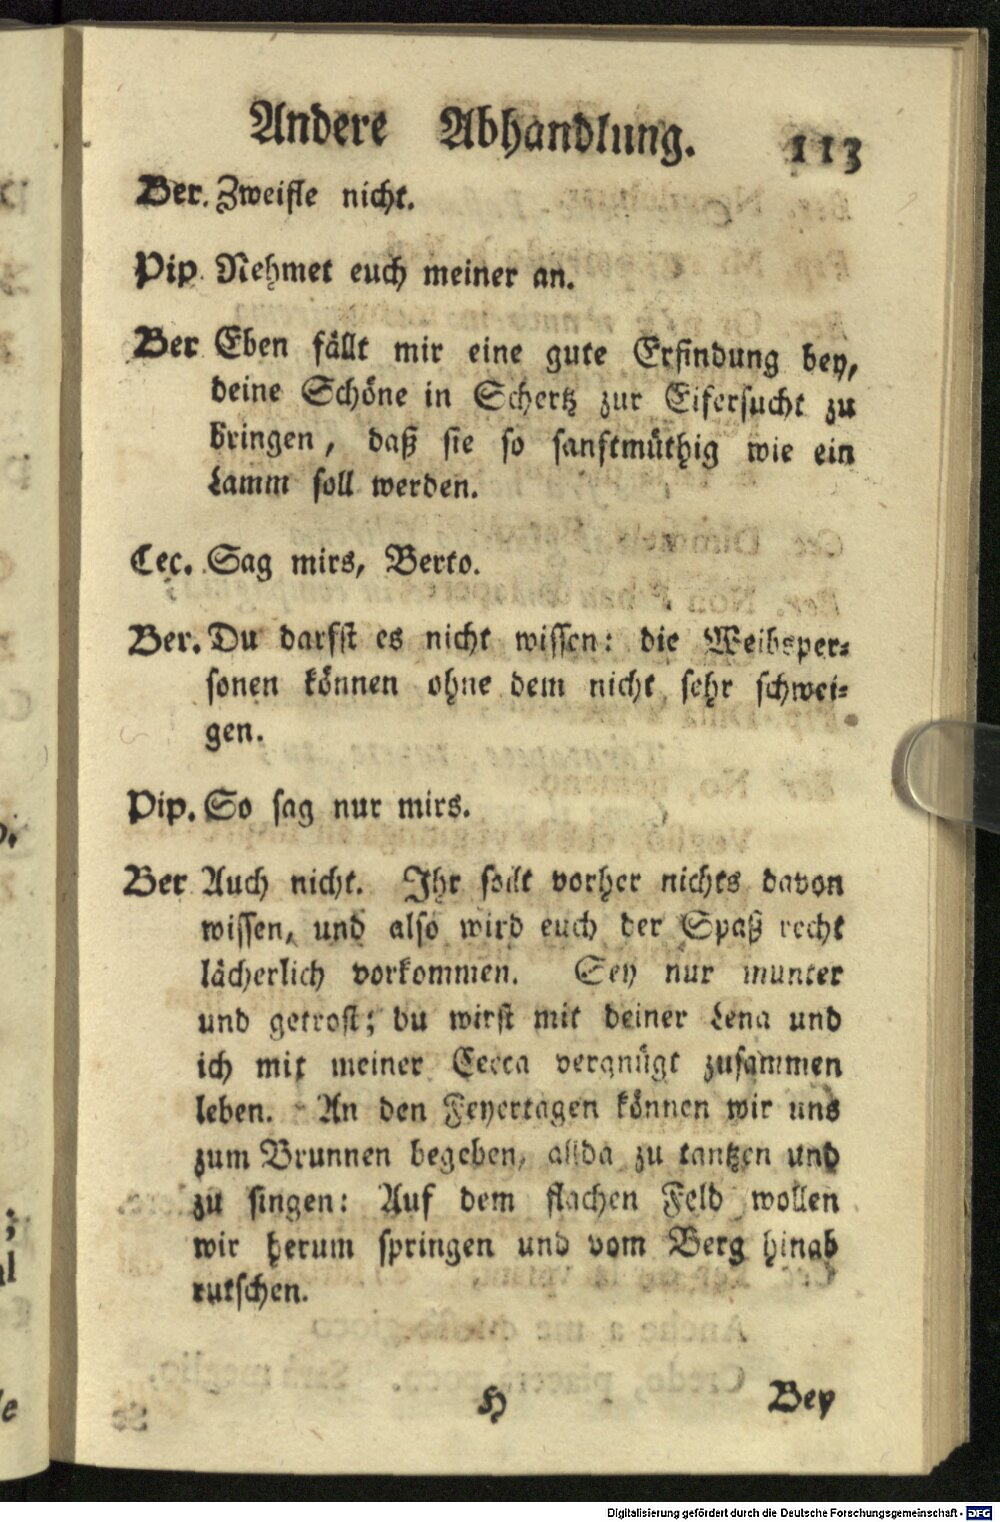 Andere Abhandlung. 113
Ber. Zweifle nicht.
Pip. Nehmet euch meiner an.
Ber Eben fällt mir eine gute Erfindung bey,
deine Schöne in Schertz zur Eifersucht zu
bringen, daß sie so sanftmüthig wie ein
Lamm soll werden.
Cec. Sag mirs, Berto.
Ber. Du darfst es nicht wissen: die Weibsper-
sonen können ohne dem nicht sehr schwei-
gen.
Pip. So sag nur mirs.
Ber Auch nicht. Ihr sollt vorher nichts davon
wissen, und also wird euch der Spaß recht
lächerlich vorkommen. Sey nur munter
und getrost; du wirst mit deiner Lena und
ich mit meiner Cecca vergnügt zusammen
leben. An den Feyertagen können wir uns
zum Brunnen begeben, allda zu tantzen und
zu singen: Auf dem flachen Feld wollen
wir herum springen und vom Berg hinab
rutschen.
H Bey
Digitalisierung gefördert durch die Deutsche Forschungsgemeinschaft - DFG